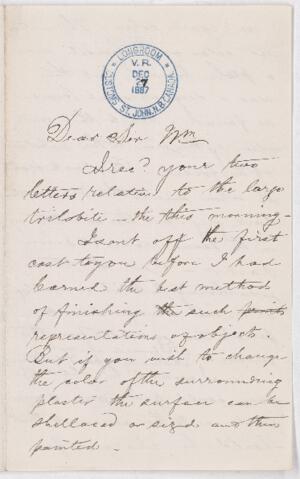 LONGROOM
V. R.
DEC
7
1887
CUSTOMS, ST. JOHN, N.B. CANADA.
Dear Sir Wm
I recd. your two
letters relative to the large
trilobite – the this morning –
I sent off the first
cast to you before I had
learned the best method
of finishing the such
representations of objects.
But if you wish to change
the color of the surrounding
plaster the surface can be
shellaced or sized and then
painted –